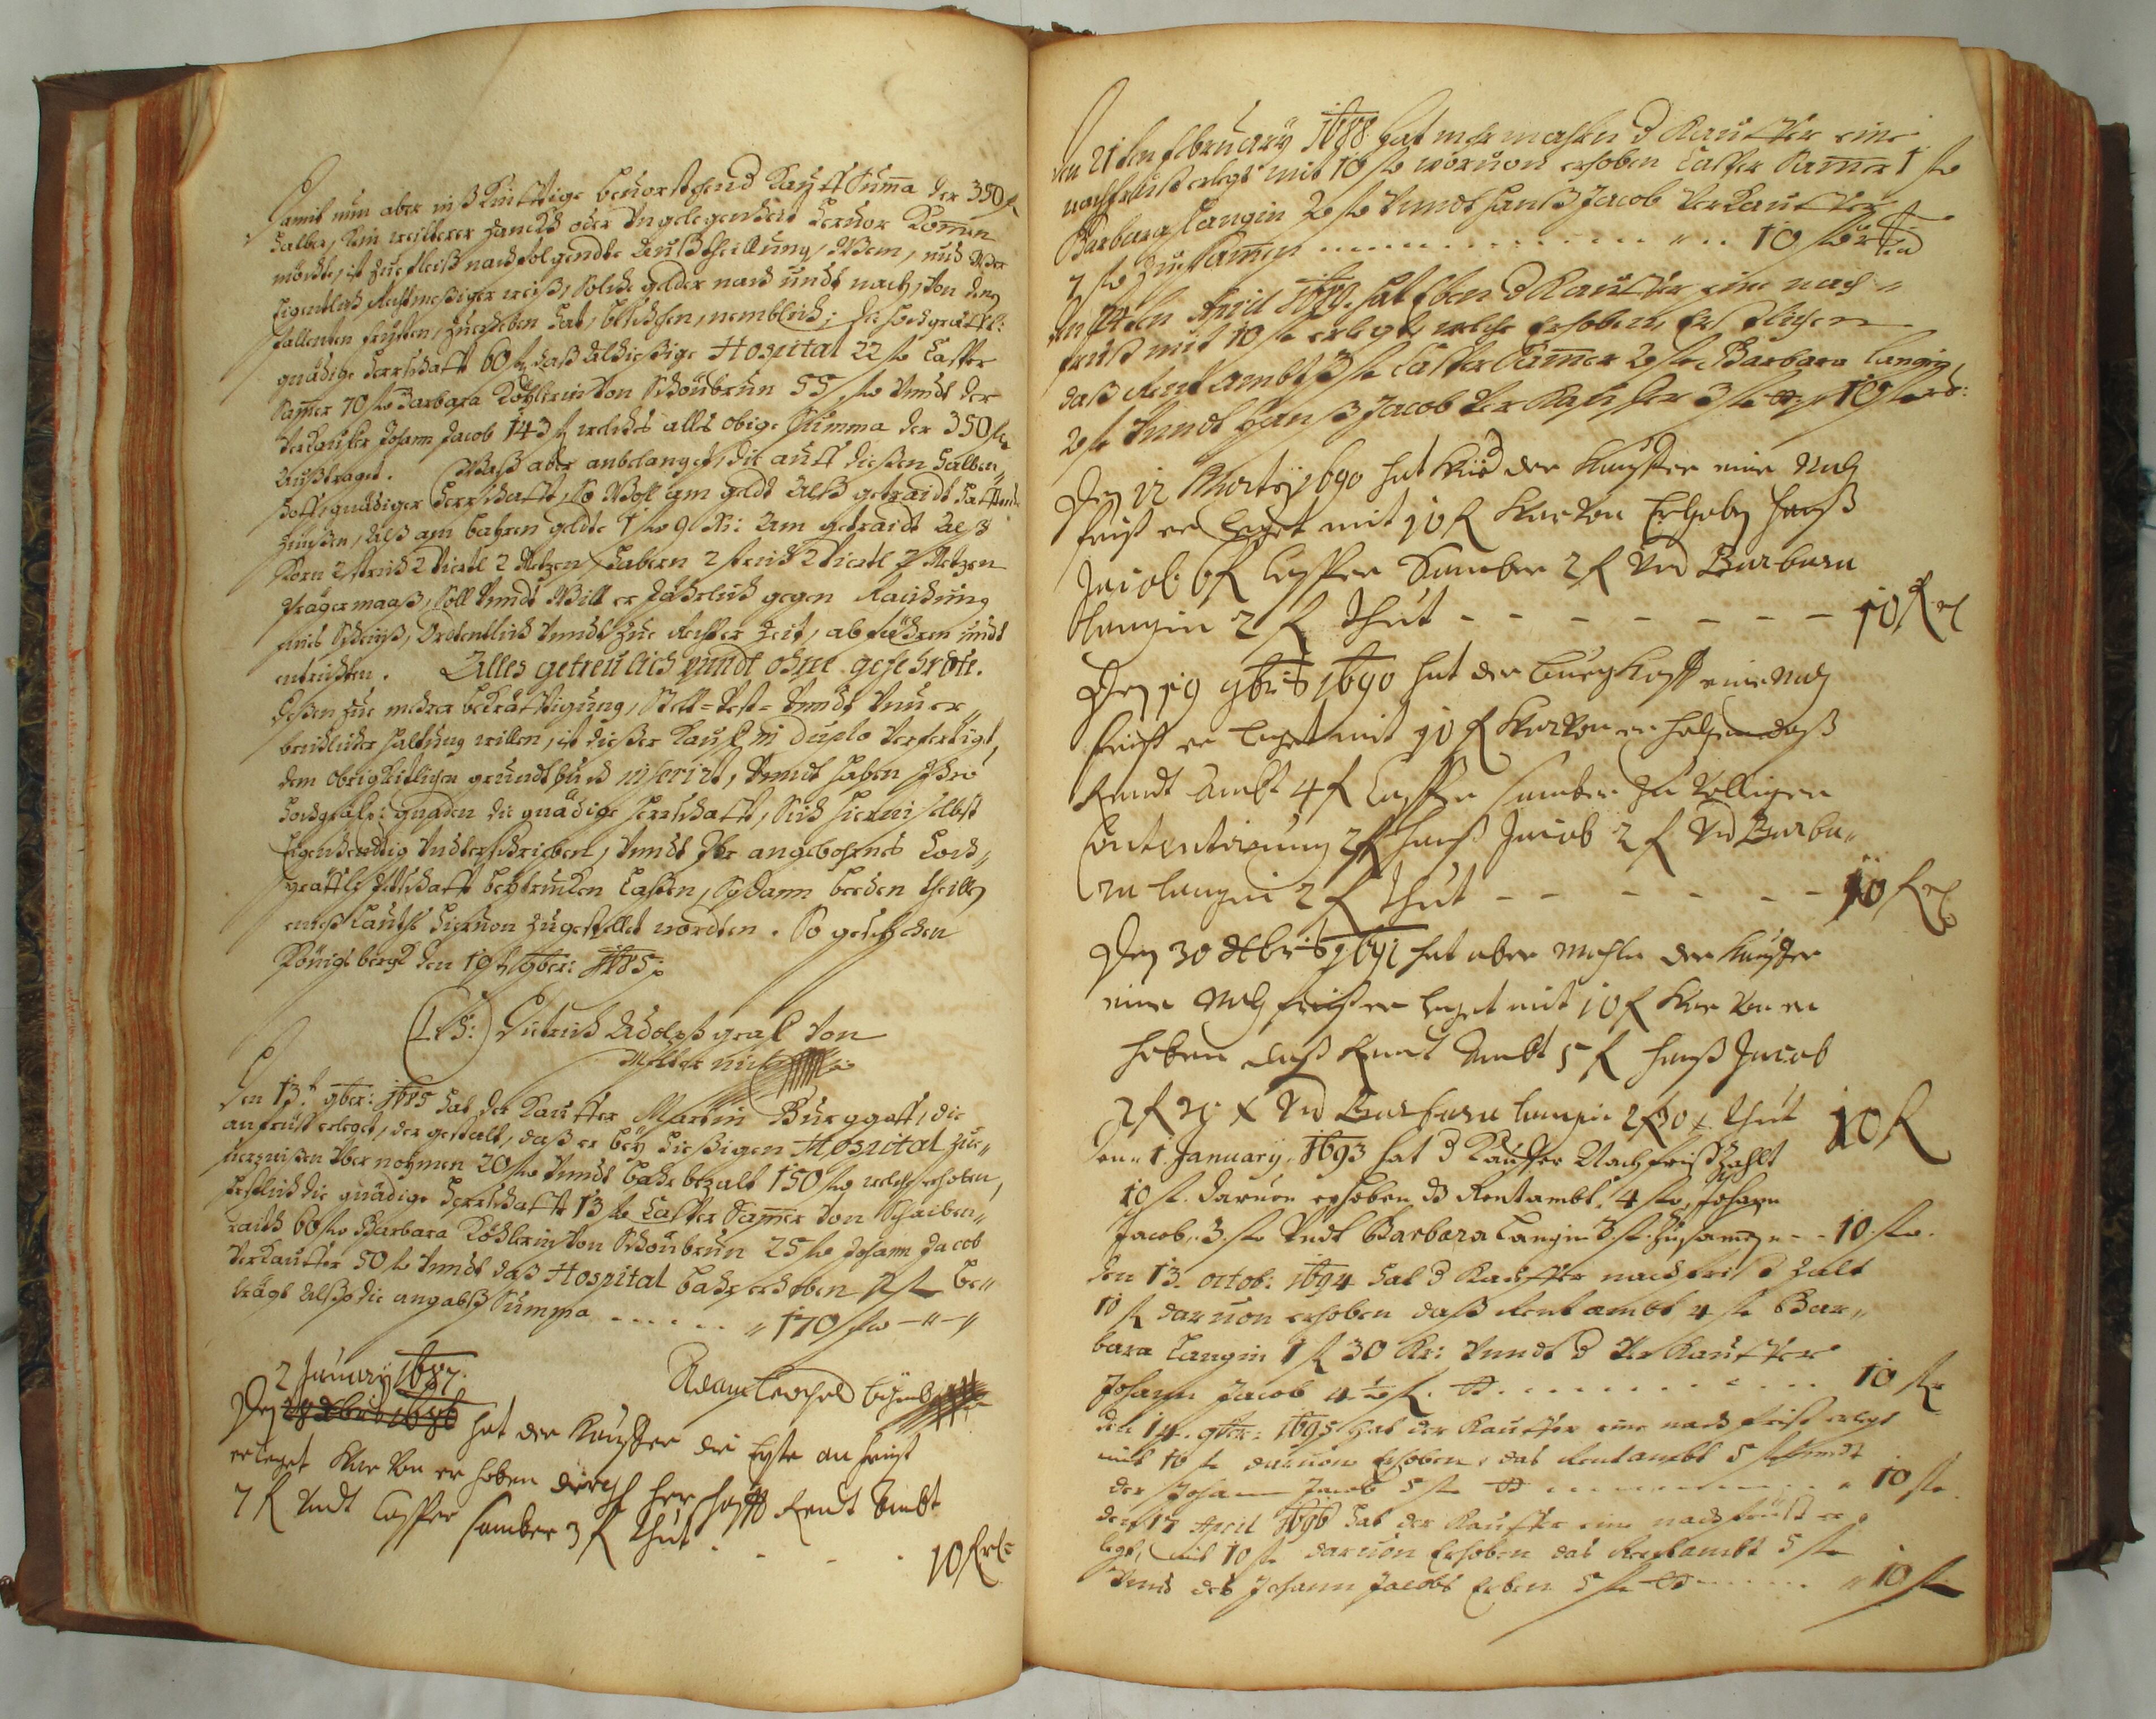 Damit nun aber inß Künfftige bevorstehend Kauff Suma der 350 fl
halber, Kein weitherer Zanckh oder Ungelegenheit hervor Komen
möchte, ist zue fleiß nachfolgendte Außtheillung, Wem, und Wer
Eigentlich Rechtmeßiger weiß, Solche gelder nach undt nach, von denen
fallenten fristen, zuerheben hat, beschehen, nemblich: die hochgräffl:
gnädige Herrschafft 60 fl daß alhießige Hospital 22 fl Casper
Samer 70 fl Barbara Köhlerin von Schönbrun 55 fl Unndt der
Verkauffer Johann Jacob 143 fl welches alles obige Summa der 350 fl
Außtraget. Waß aber anbelanget, die auff dießen halben
Hoff, gnädiger Herrschafft, So Woll am geldt Alß getraidt hafftende
Zinßen, Alß am bahren geldte 1 fl 9 Kr: Am getraidt Alß
Korn 2 strich 2 viertl 2 Metzen Habern 2 strich 2 viertl 2 Metzen
Prager maaß, Soll Unndt Will er Jährlich gegen Raichung
eines Scheinß, Ordentlich Unndt zue Rechter Zeit, abführen undt
entrichten. Alles getreulich unndt ohne gefehrdte.
Deßen zue mehrer bekräfftigung, Stett- Vest- Unndt Unuer„
brüchlicher haltung willen, ist dießer Kauff in duplo Verfertigt,
dem obrigkeitlichen grundtbuch inserirt, Unndt haben Ihro
Hochgräfl: gnaden die gnädige Herrschafft, Sich hierin selbst
Eigenhendig Underschrieben, Unndt Ihr angebohrnes Hoch„
gräffl: Pettschafft beytrucken Laßen, So dann beeden theillen
eines Lauths hiervon zugestellet wordten. So geschehen
Königsbergk den 19t 9ber: 1685.
(L:S:) Dietrich Adolph graf von
Metternich
Den 13t 9ber: 1685 hat der Kauffer Martin Burggaff, die
anfrist erleget, der gestalt, daß er bey hießigen Hospital zue„
verzinßen Über nohmen 20 fl Unndt bahr bezalt 150 fl welche erhoben,
Erstlich die gnädige Herrschafft 13 fl Casper Samer von Schaiben„
raith 60 fl Barbara Köhlerin von Schönbrun 25 fl Johann Jacob
Verkauffer 50 fl Unndt daß Hospital bahr erhoben 2 fl Be„
trägt Alßo die angabß Summa . . . . . . „ 170 fl —„—„
2 January 1687.
Den 28 Xbris 1686 hat der Kauffer die Erste an frist
erleget Wor Von er hoben durch Herschafft Rendt Ambt
7 fl Undt Casper Samber 3 fl thut . . . . 10 fl
Den 21ten february 1688 hat mehr mahlen d Kauffer eine
nachfrist erlegt mit 10 fl woruon erhoben Casper Samer 1 fl
Barbara Langin 2 fl Unndt Hanß Jacob Verkauffer
7 fl Zusamen . . . . . . . . . . . 10 fl
April hat Eben d Kauffer eine nach„
frist mit 10 fl erlegt, welche Erhoben, Erstlichen
daß Rent ambt 3 fl Casper Samer 2 fl Barbara Langin
2 fl Unndt Hanß Jacob Verkauffer 3 fl 10 fl
Den 12 Marty 1690 hat Wid der Kauffer eine Nach
frist er Leget mit 10 fl Wor Von Erhoben Hanß
Jacob 6 fl Casper Samber 2 fl Und Barbara
Langin 2 fl thut - - - - - - - 10 fl
Den 19 9bris 1690 hat der Burgkhaff eine Nach
frist er Leget mit 10 fl Wor Von er haben daß
Rendt Ambt 4 fl Casper Samber zu Völligen
Contentirung 2 fl Hanß Jacob 2 fl Und Barba„
ra Langin 2 fl thut - - - - - - 10 fl
Den 30 Xbris 1691 hat aber mahln der Kauffer
eine Nach frist er leget mit 10 fl Wor Von er
hoben daß Rent Ambt 5 fl Hanß Jacob
2 fl x Und Barbara Langin 2 fl 30 x thut 10 fl
Den 1 January. 1693 hat d Kauffer Nachfrist zahlt
10 fl. daruon erhoben ds Rentambt. 4 fl, Johann
Jacob. 3. fl Undt Barbara Langin 3. fl. Zusamen - - 10. fl.
den 13. octob: 1694 hat d Kauffer nachfrist zalt
10 fl daruon erhoben daß Rentambt 4 fl Bar„
bara Langin 1 fl 30 Kr: Unndt d Verkauffer
Johann Jacob 4 ½ fl. . . . . . . . . . . 10 fl
den 14. 9ber: 1695 hat der Kauffer eine nachfrist erlegt
mit 10 fl daruon Erhoben, das Rentambt 5 fl Unndt
der Johann Jacob 5 fl . . . . . . . . . . „ 10 fl
den 17 April 1696 hat der Kauffer eine nachfrist er
legt, mit 10 fl daruon Erhoben das Rentambt 5 fl
Unnd des Johann Jacobs Erben 5 fl . . . . . „ 10 fl